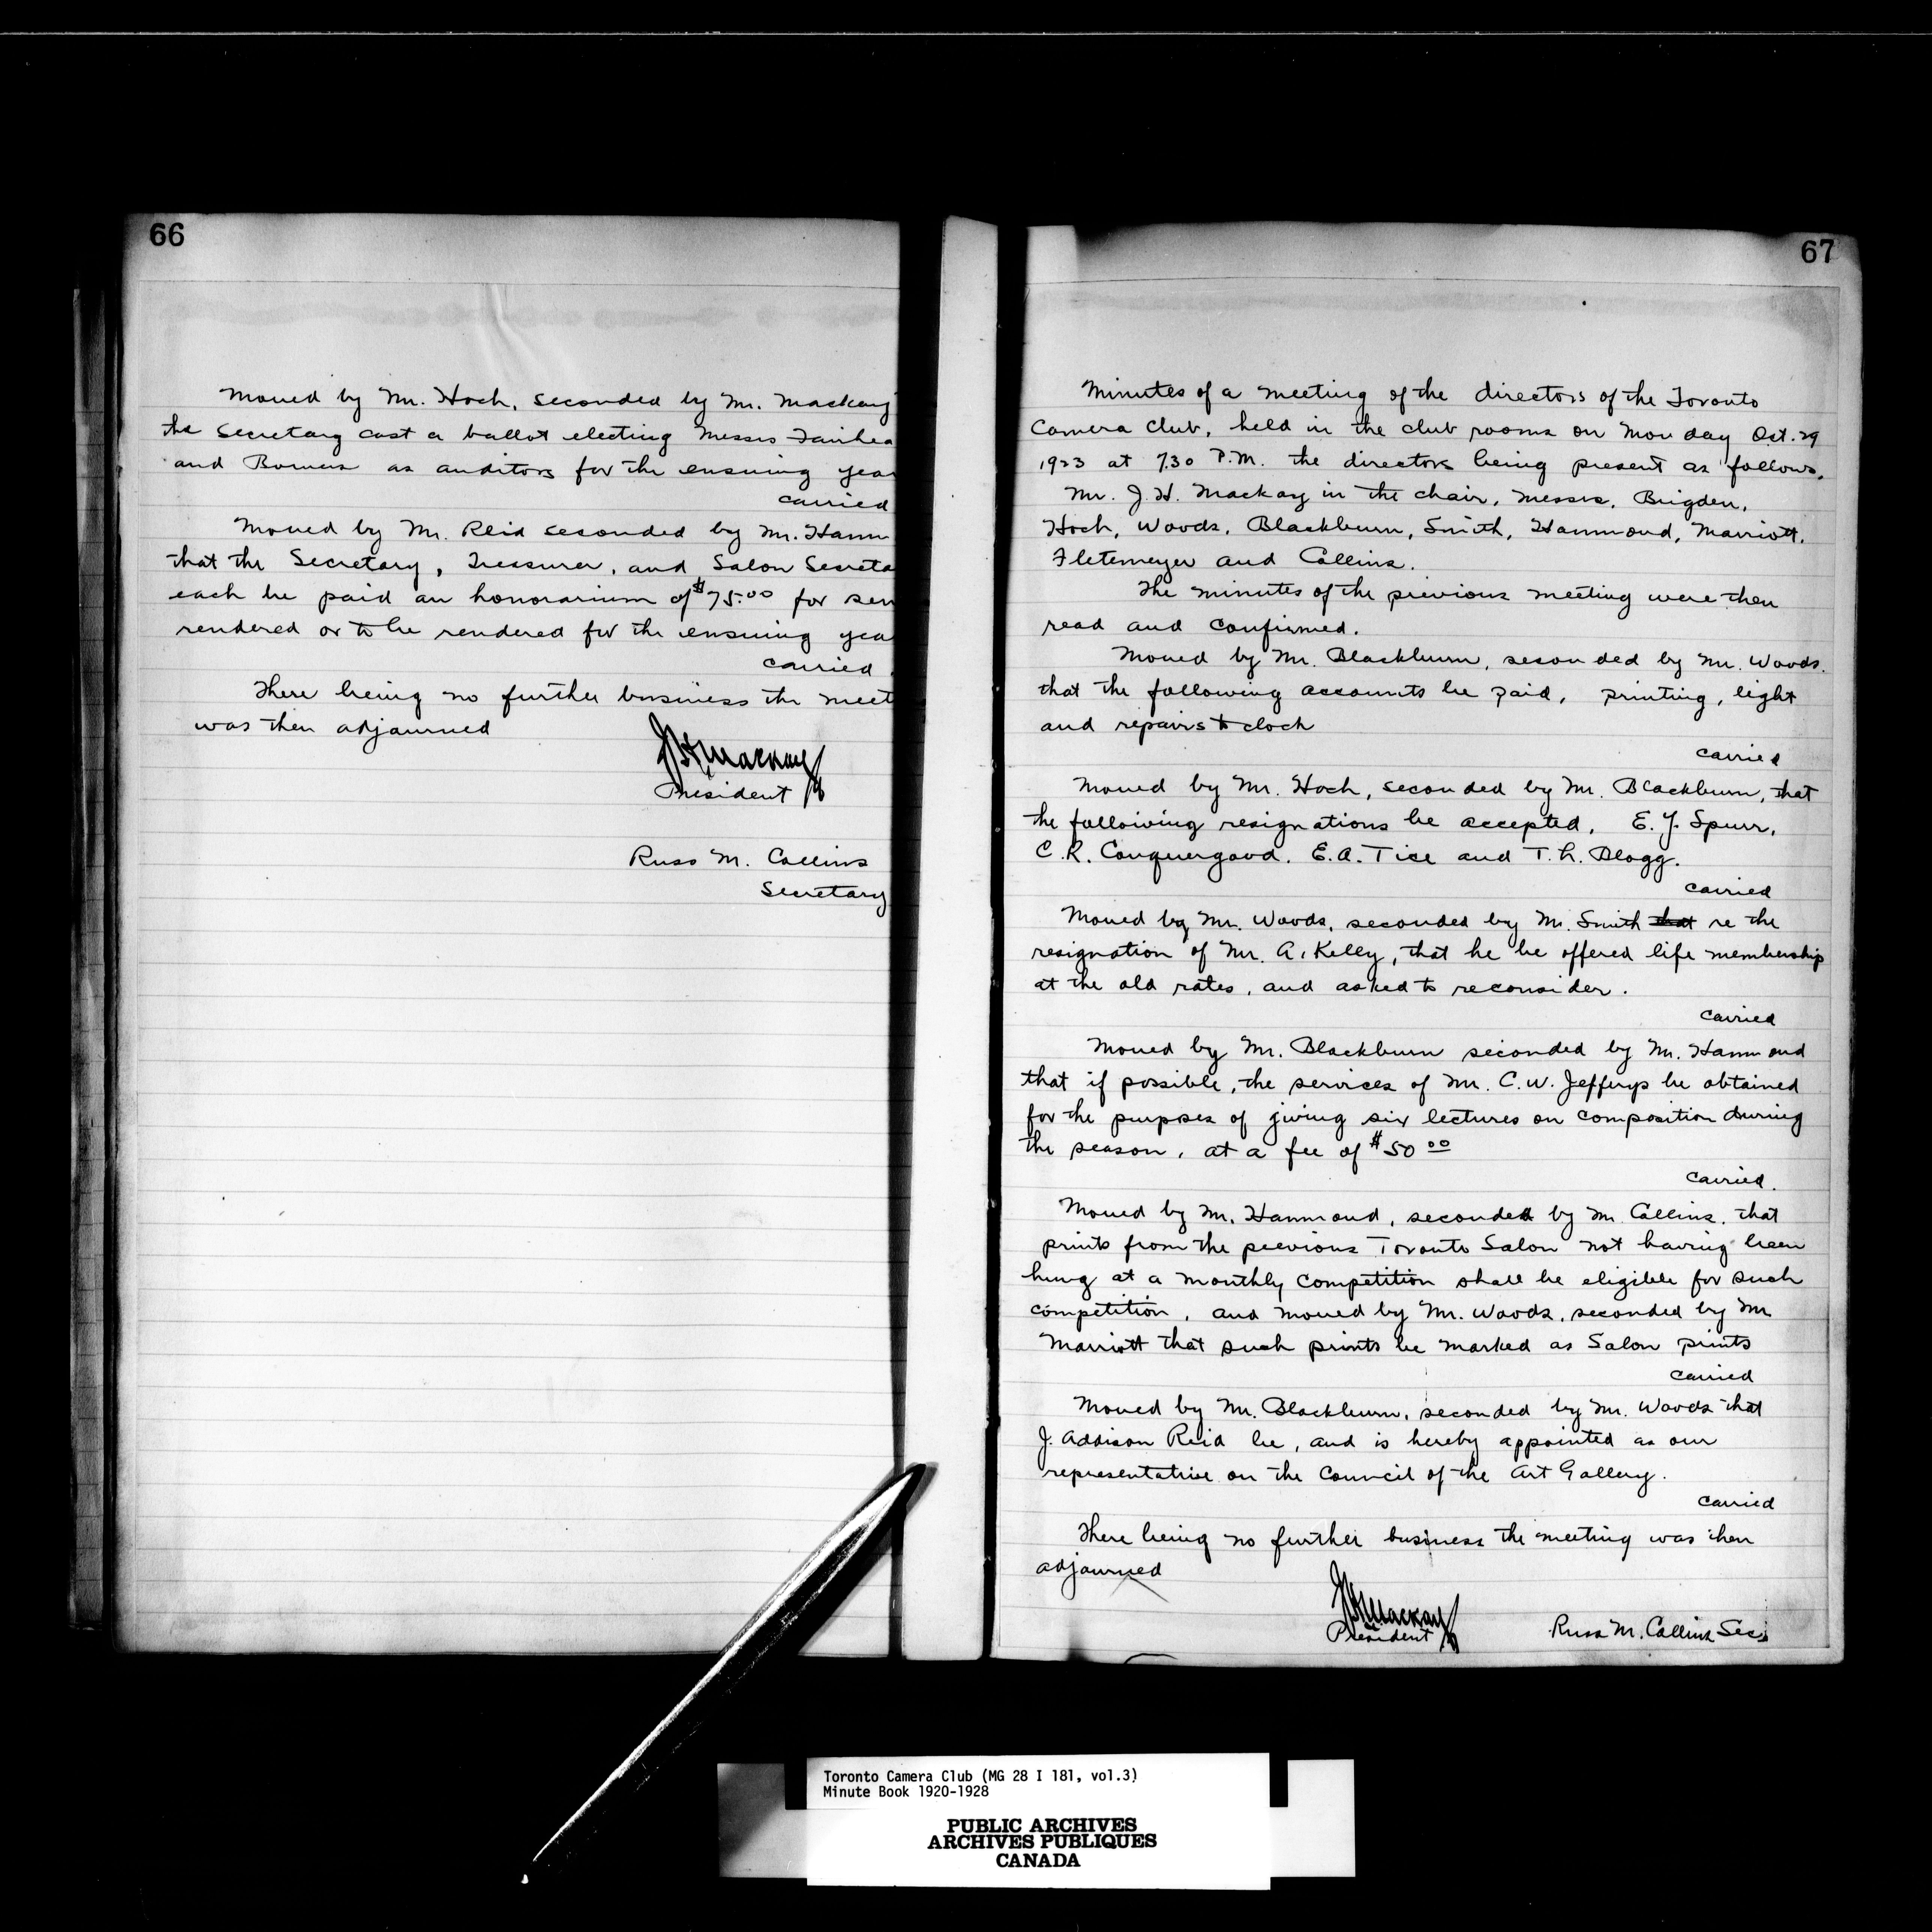 66
Moved by Mr. Hoch, seconded by Mr. Mackay
the Secretary cast a ballot electing Messrs Fairhea
and Bowers as auditors for the ensuing year
carried
Moved by Mr. Reid seconded by Mr. Hamm
that the Secretary, Treasurer, and Salon Secreta
each be paid an honorarium of $75.00 for ser
rendered or to be rendered for the ensuing yea
carried
There being no further business the meet
was then adjourned
J H Mackay
President
Russ M. Collins
Secretary
67
Minutes of a meeting of the directors of the Toronto
Camera Club, held in the club rooms on Monday Oct. 29
1923 at 7.30 P.M. the directors being present as follows.
Mr. J. H. Mackay in the chair, Messrs. Brigden,
Hoch, Woods, Blackburn, Smith, Hammond, Marriott,
Fletemeyer and Collins.
The minutes of the previous meeting were then
read and confirmed.
Moved by Mr. Blackburn, seconded by Mr. Woods.
that the following accounts be paid, printing, light
and repairs to clock
carried
Moved by Mr. Hoch, seconded by Mr. Blackburn, that
the following resignations be accepted, E. J. Spurr,
C. R. Conquergood. E. A. Tice and T. L. Blogg.
carried
Moved by Mr. Woods, seconded by Mr. Smith that re the
resignation of Mr. A. Kelly, that he be offered life membership
at the old rates, and asked to reconsider.
carried
Moved by Mr. Blackburn seconded by Mr. Hammond
that if possible, the services of Mr. C. W. Jefferys be obtained
for the purposes of giving six lectures on composition during
the season, at a fee of $50 00
carried.
Moved by Mr. Hammond, seconded by Mr. Collins. that
prints from the previous Toronto Salon not having been
hung at a monthly competition shall be eligible for such
competition, and moved by Mr. Woods, seconded by Mr
Marriott that such prints be marked as Salon prints
carried
Moved by Mr. Blackburn, seconded by Mr. Woods that
J. Addison Reid be, and is hereby appointed as our
representative on the Council of the Art Gallery.
carried
There being no further business the meeting was then
adjourned
J H Mackay
President
Russ M. Collins Sec.
Toronto Camera Club (MG 28 I 181, vol.3)
Minute Book 1920-1928
PUBLIC ARCHIVES
ARCHIVES PUBLIQUES
CANADA